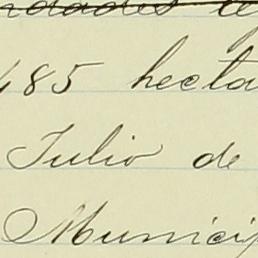 485 hecta
Julio de
Municip